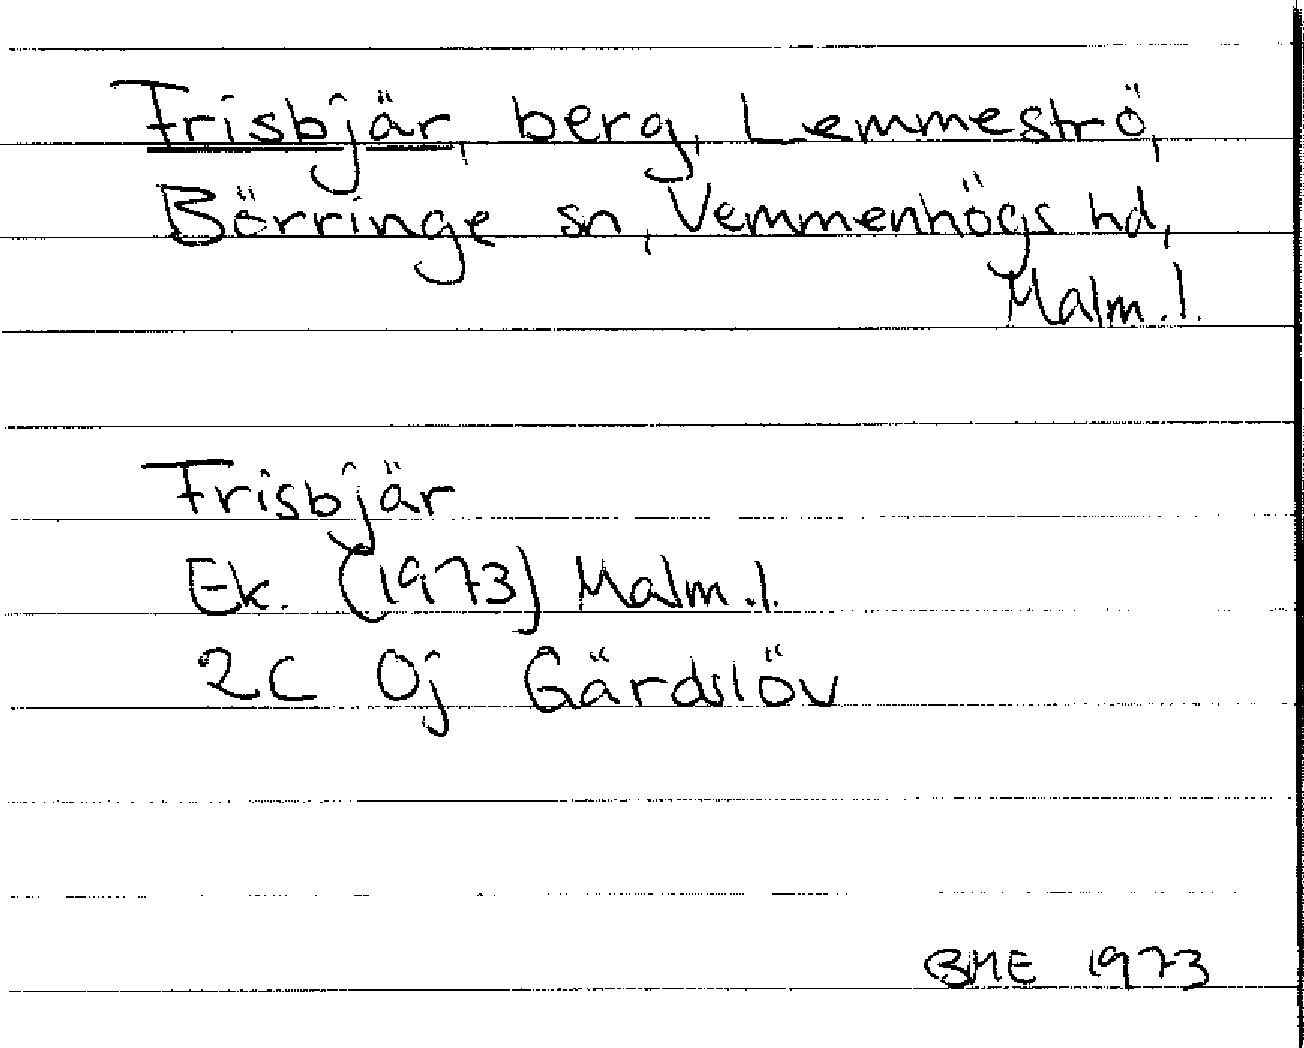 Frisbjär, berg, Lemmeströ,
Börringe sn, Vemmenhögs hd,
Malm.l.
Frisbjär
Ek. (1973) Malm.l.
2C 0j Gärdslöv
BME 1973